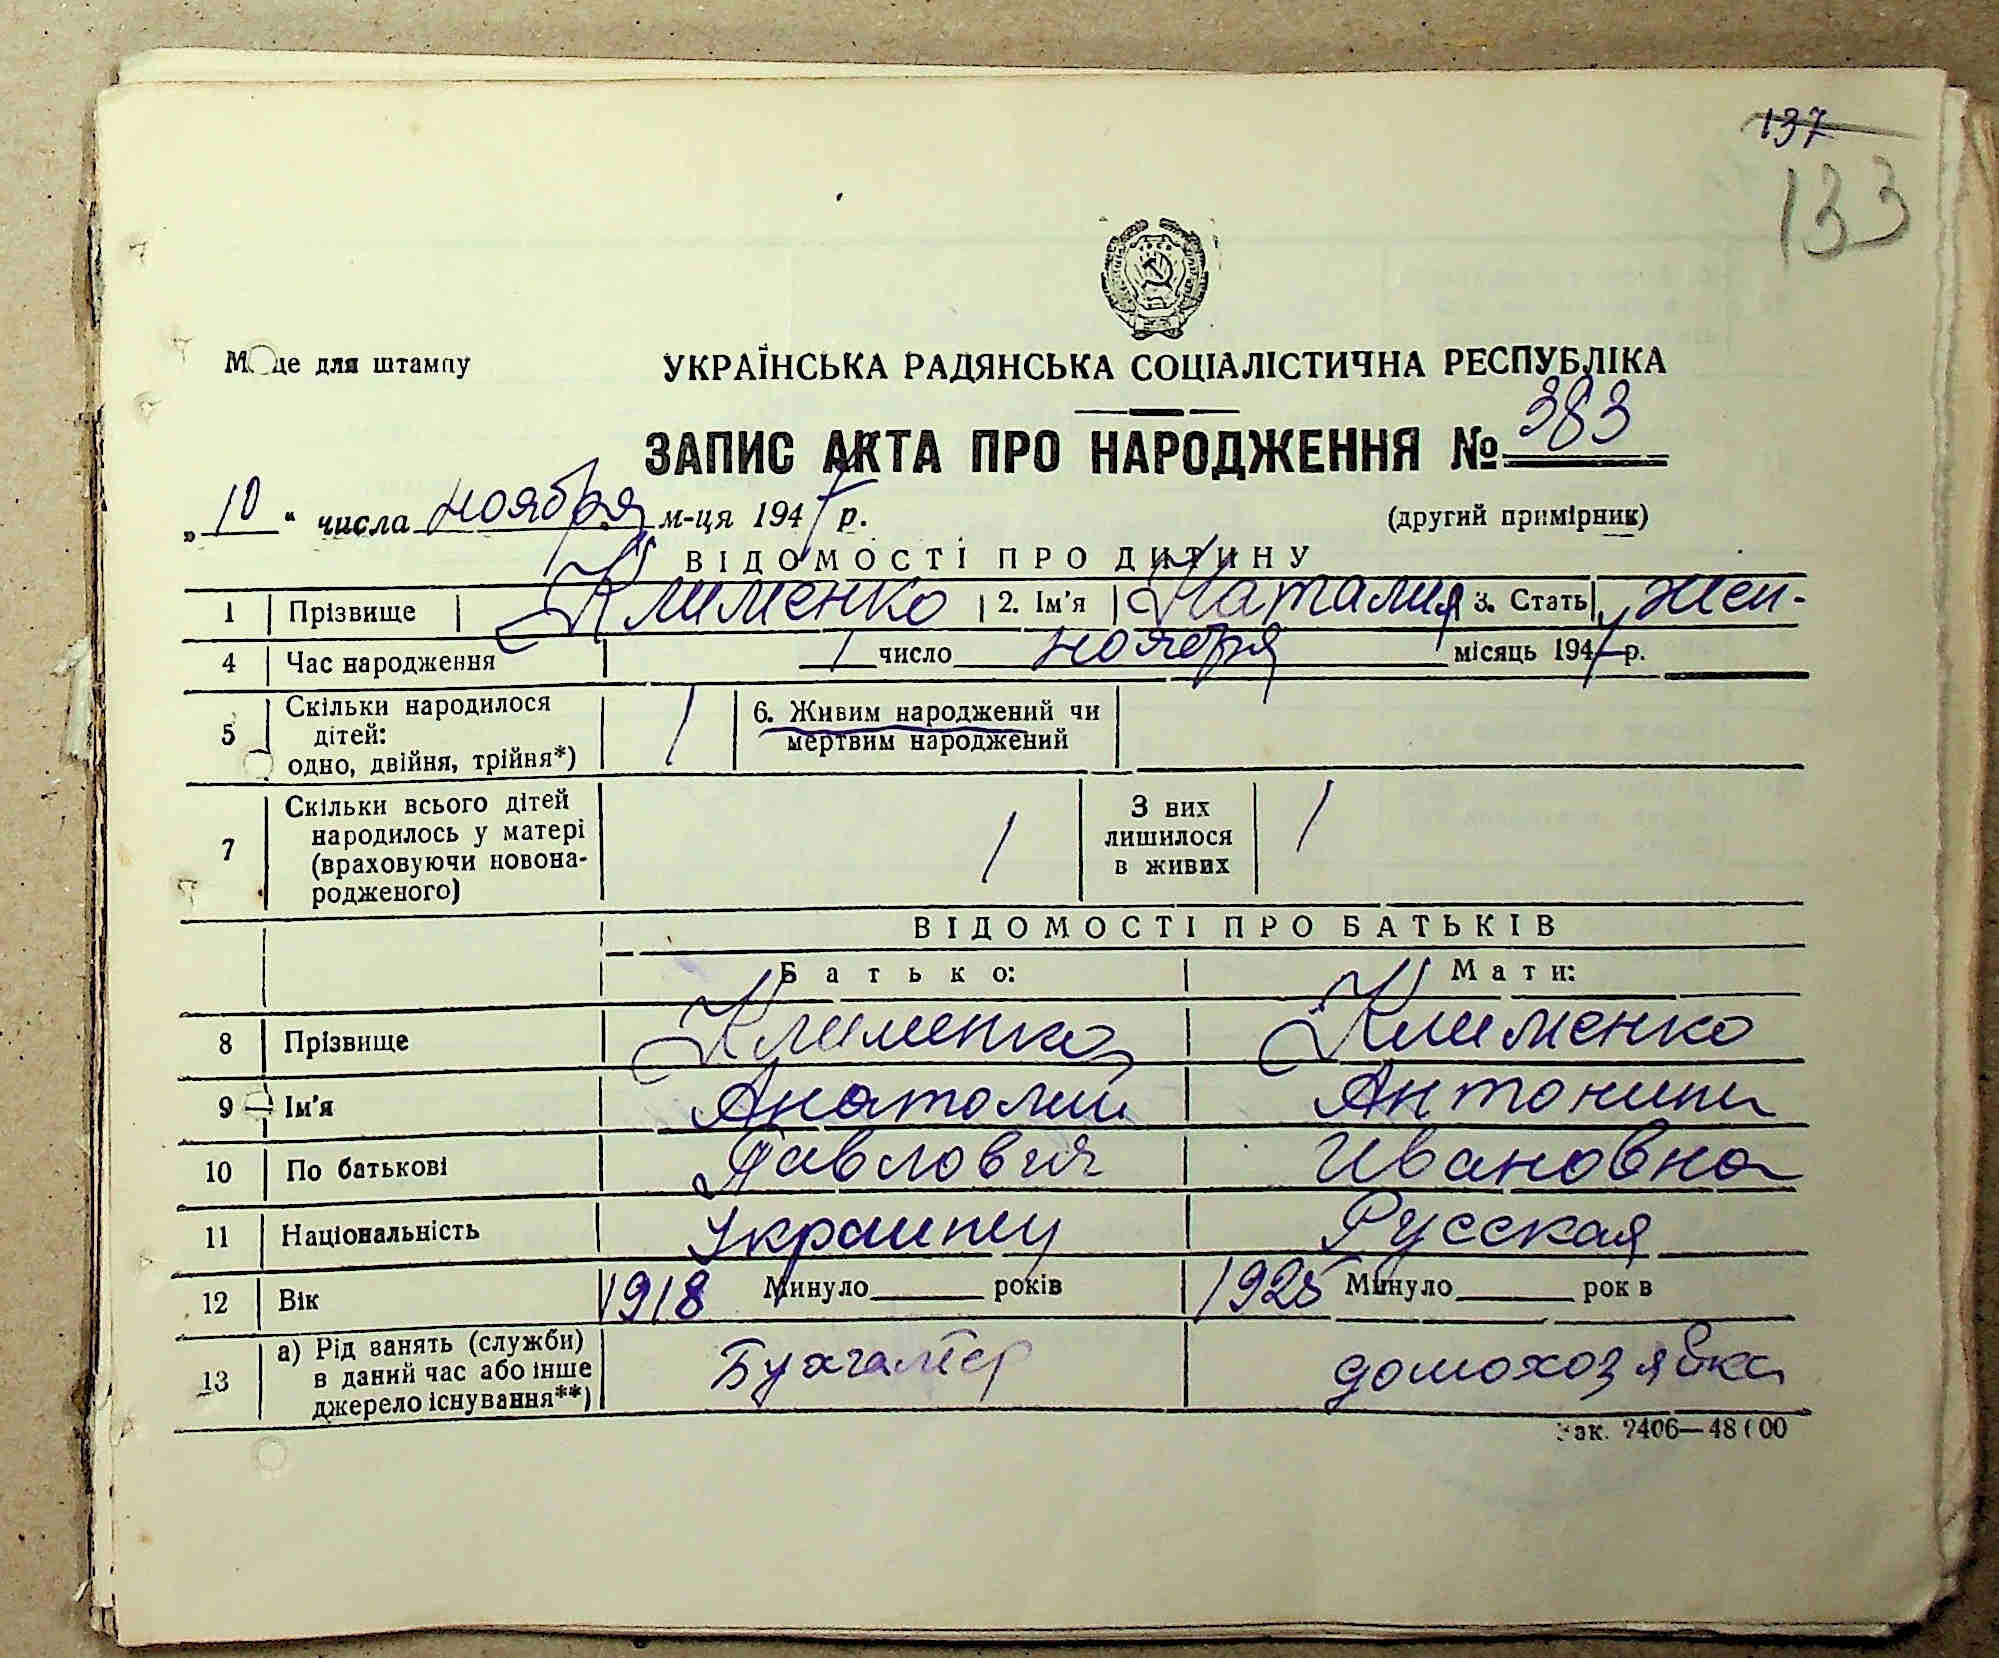 137
133
М це для штампу
УКРАЇНСЬКА РАДЯНСЬКА СОЦІАЛІСТИЧНА РЕСПУБЛІКА
ЗАПИС АКТА ПРО НАРОДЖЕННЯ № 383
„10“ числа ноября м-ця 1947 р. (другий примірник)
ВІДОМОСТІ ПРО ДИТИНУ
1 Прізвище Клименко 2. Ім'я Наталия 3. Стать Жен-
4 Час народження 1 число ноября місяць 1947 р.
5 Скільки народилося дітей: одно, двійня, трійня*) 1 6. Живим народжений чи мертвим народжений
7 Скільки всього дітей народилось у матері (враховуючи новонародженого) 1 З них лишилося в живих 1
ВІДОМОСТІ ПРО БАТЬКІВ
Батько: Мати:
8 Прізвище Клименко Клименко
9 Ім'я Анатолий Антонина
10 По батькові Павлович Ивановна
11 Національність Украинец Русская
12 Вік 1918 Минуло рокiв 1925 Минуло рок в
13 а) Рід занять (служби) в даний час або інше джерело існування**) Бухгалтер домохозяйка
Зак. 2406—48000